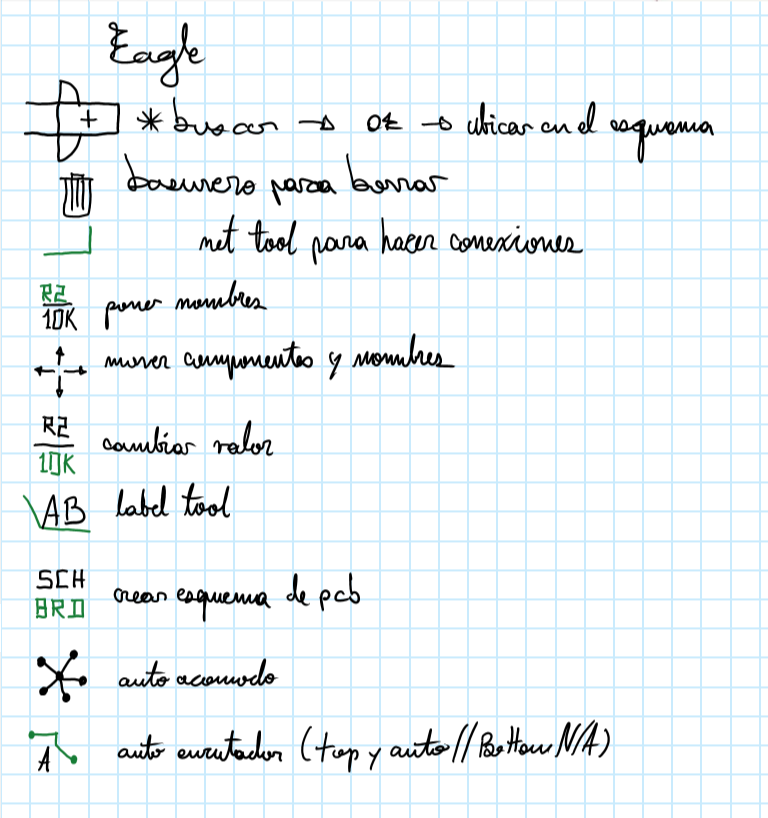 Eagle
+ * buscar → ok → ubicar en el esquema
basurero para borrar
net tool para hacer conexiones
R2
10K poner nombres
mover componentes y nombres
R2
10K cambiar valor
AB label tool
SCH
BRD crear esquema de pcb
auto acomodo
A auto enrutador (top y auto // Bottom N/A)